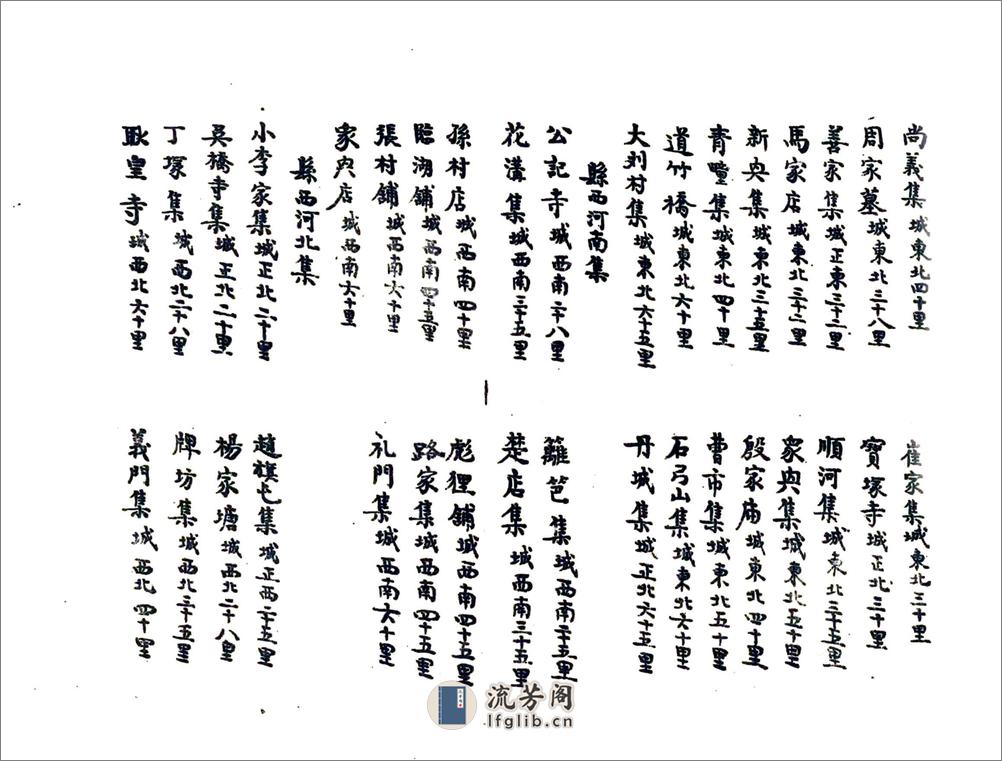 尚義集城東北四十里
崔家集城東北三十里
周家墓城東北三十八里
寶塚寺城正北三十里
善家集城正東三十二里
順河集城東北三十五里
馬家店城東北三十二里
眾興集城東北五十里
新興集城東北三十五里
殷家庙城東北四十里
青疃集城東北四十里
曹市集城東北五十里
道竹橋城東北六十里
石弓山集城東北六十里
大刘村集城東北六十五里
丹城集城正北六十五里
縣西河南集
公記寺城西南二十八里
籬笆集城西南二十五里
花溝集城西南三十五里
楚店集城西南三十五里
孫村店城西南四十里
彪狸鋪城西南四十五里
臨湖鋪城西南四十五里
路家集城西南四十五里
張村鋪城西南六十里
礼門集城西南六十里
家興店城西南六十里
縣西河北集
小李家集城正北二十里
趙旗屯集城正西二十五里
吳橋寺集城正北二十里
楊家塘城西北二十八里
丁塚集城西北二十八里
牌坊集城西北三十五里
耿皇寺城西北六十里
義門集城西北四十里
流芳阁
lfglib.cn